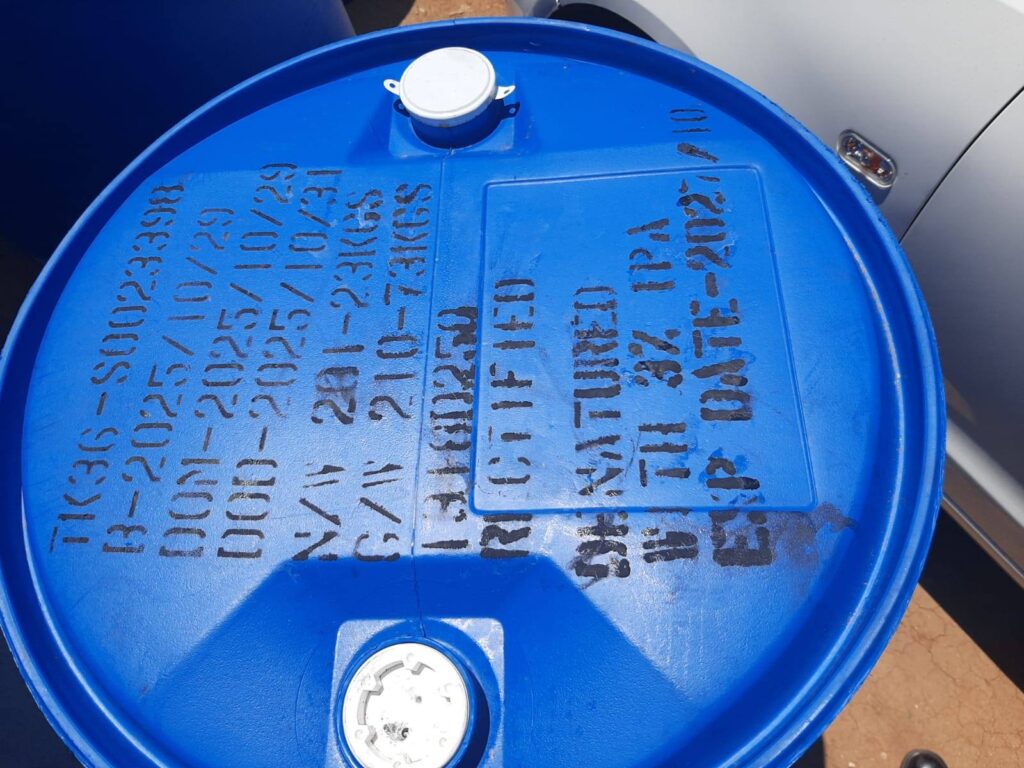 TIK36-S0023398
B-2025/10/29
DOM-2025/10/29
DOD-2025/10/31
N/W 201-23KGS
G/W 210-73KGS
RECTIFIED
DENATURED
WITH 3% IPA
EXP DATE-2027/10